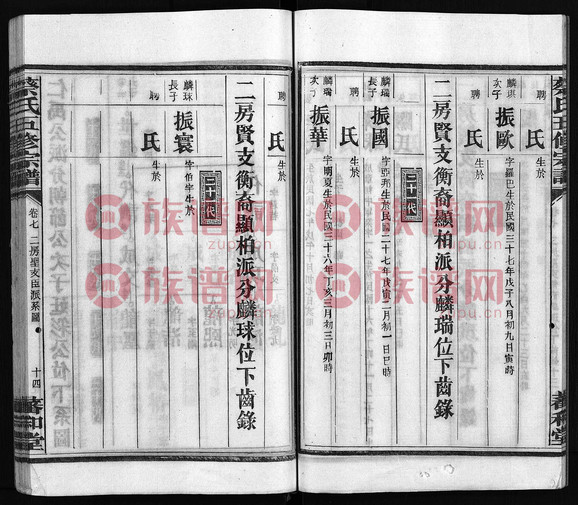 麟琪次子振歐字羅巴生於民國三十七年戊子八月初九日寅時
聘 氏生於
二房賢支衡裔顯柏派分麟瑞位下齒錄
二十代
麟瑞長子振國字亞邦生於民國二十七年戊寅二月初一日巳時
聘 氏生於
麟瑞次子振華字明夏生於民國三十六年丁亥三月初三日卯時
聘 氏生於
二房賢支衡裔顯柏派分麟球位下齒錄
二十代
麟球長子振寰字伯宇生於
聘 氏生於
蔡氏五修宗譜
卷七 二房聖支臣派系圖
十四
蕃和堂
族谱网
zupu.cn